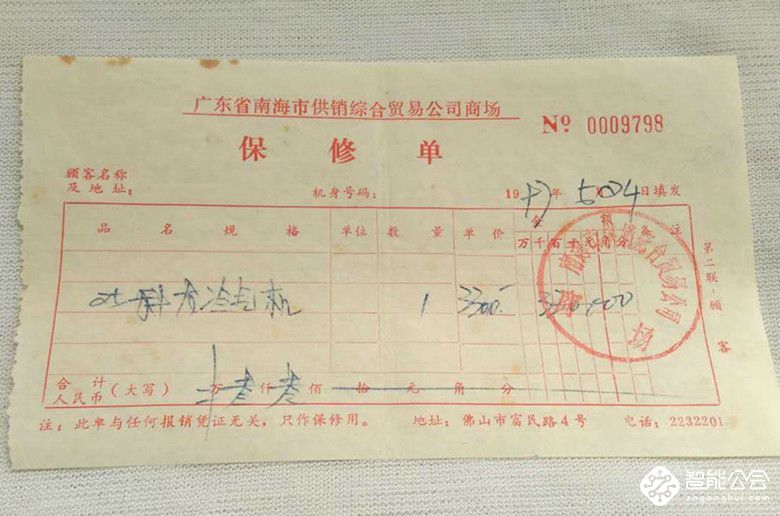 广东省南海市供销综合贸易公司商场
№ 0009798
保修单
顾客名称
及地址：
机身号码：
19 年 月 日填发
品名规格 单位 数量 单价 金额 备注
万千百十元角分
科龙冷气机 1 3300.-
合计
人民币（大写） 万叁仟叁佰拾元角分
注：此单与任何报销凭证无关，只作保修用。 地址：佛山市富民路4号 电话：2232201
第二联：顾客
智能公会
www.zngonghui.com